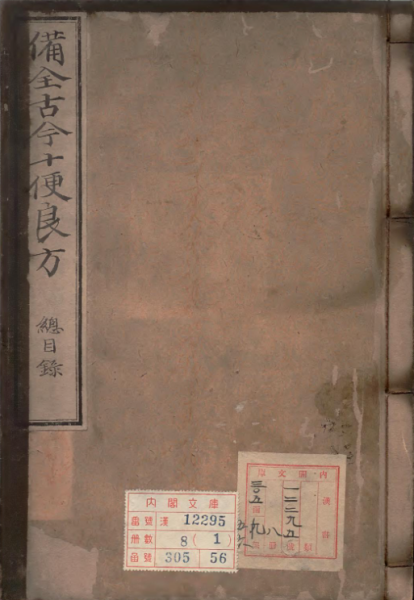 備全古今十便良方
總目錄
內閣文庫
番號 漢 12295
冊數 8 ( 1 )
函號 305 56
內閣文庫
漢
一二二九五
八
三〇五